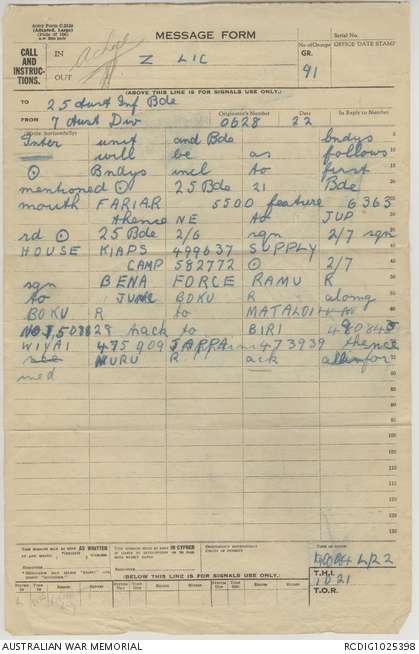 MESSAGE FORM
Serial No.
Army Form C.2128
(Adapted, Large)
(Pads of 100)
CALL AND INSTRUC-TIONS.
IN
OUT
Z LIC
No. of Groups
GR.
91
OFFICE DATE STAMP
(ABOVE THIS LINE IS FOR SIGNALS USE ONLY.)
TO 25 Aust Inf Bde
FROM 7 Aust Div
Originator's Number 0628
Date 22
In Reply to Number
Inter unit and Bde bndys
will be as follows
⊙ Bndys incl to first
mentioned ⊙ 25 Bde 21 Bde
mouth FARIAR 5500 feature 6363
thence NE to JUP
rd ⊙ 25 Bde 2/6 sqn 2/7 sqn
HOUSE KIAPS 499637 SUPPLY
CAMP 582772 ⊙ 2/7
sqn BENA FORCE RAMU R
to JUNC BOKU R along
BOKU R to MATALOI
NO 1 507829 track to BIRI 490845
WIYAI 475909 JAPPA 473939 thence
MURU R ack all infor
med
THIS MESSAGE MAY BE SENT AS WRITTEN
THIS MESSAGE MUST BE SENT IN CYPHER
(BELOW THIS LINE IS FOR SIGNALS USE ONLY.)
T.H.I.
1021
T.O.R.
AUSTRALIAN WAR MEMORIAL
RCDIG1025398